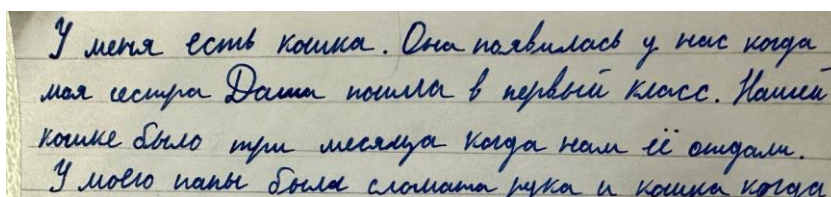 У меня есть кошка. Она появилась у нас когда
моя сестра Даша пошла в первый класс. Нашей
кошке было три месяца когда нам её отдали.
У моего папы была сломата рука и кошка когда